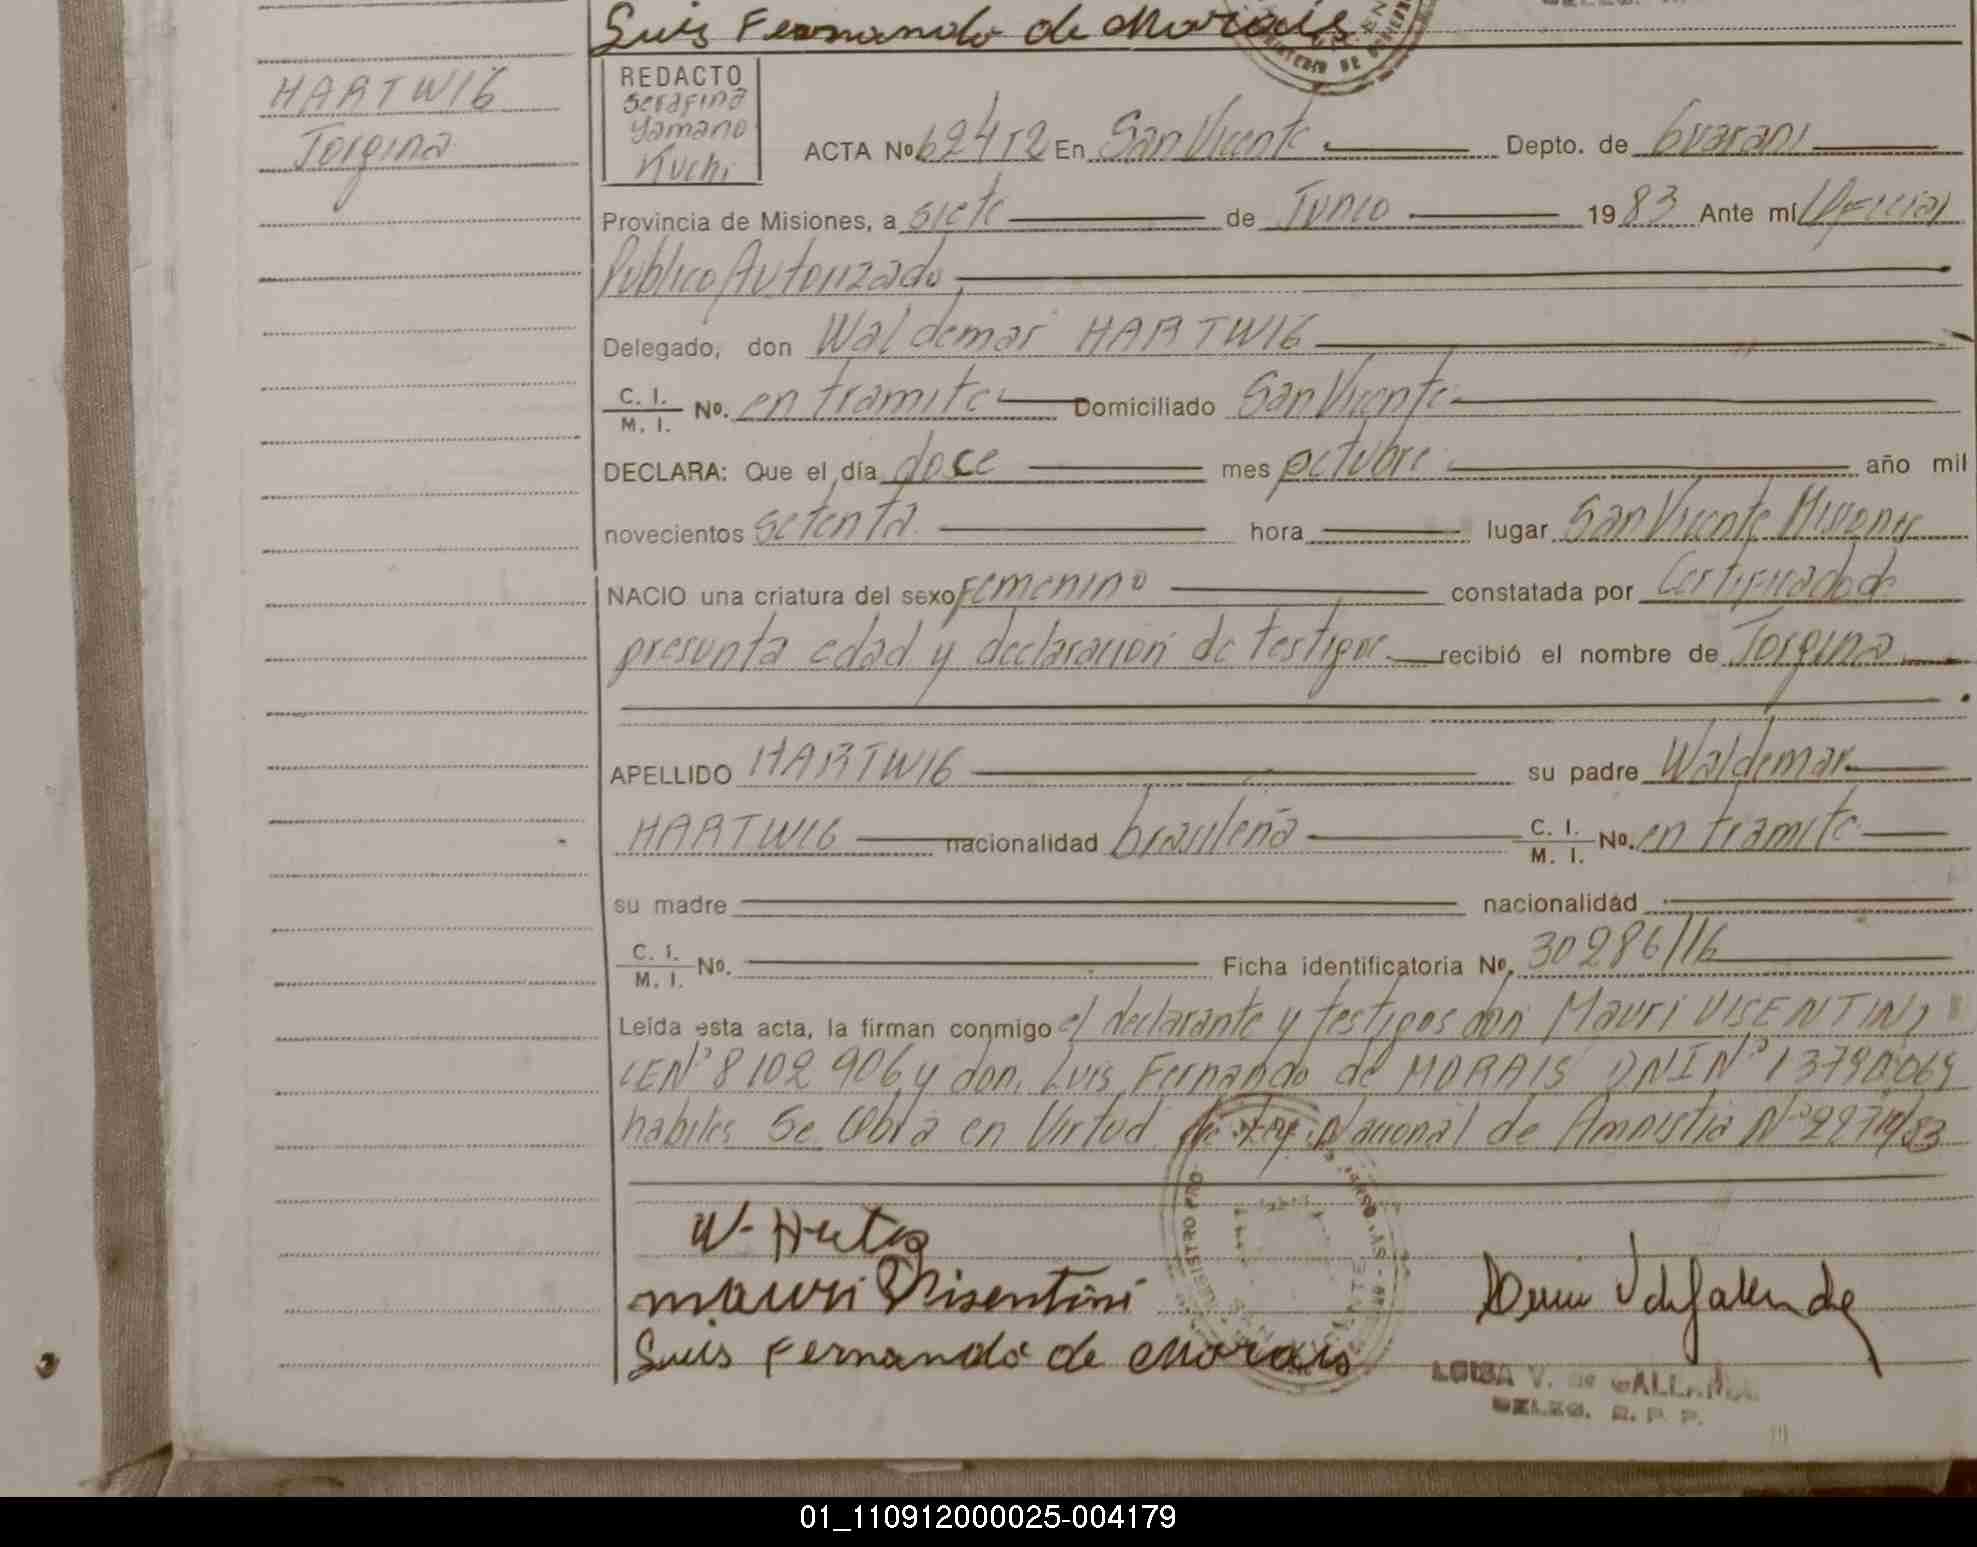 Luis Fernando de Morais
HARTWIG
Jorgina
REDACTO
Serafina
Yamano
Kuchi
ACTA No 624 T2 En San Vicente Depto. de Guarani
Provincia de Misiones, a siete de Junio 1983 Ante mí Oficial
Publico Autorizado
Delegado, don Waldemar HARTWIG
C. I.
M. I. No. en tramite Domiciliado San Vicente
DECLARA: Que el día doce mes octubre año mil
novecientos setenta hora lugar San Vicente Misiones
NACIO una criatura del sexo Femenino constatada por Certificado de
presunta edad y declaracion de testigos recibió el nombre de Jorgina
APELLIDO HARTWIG su padre Waldemar
HARTWIG nacionalidad brasileña C. I.
M. I. No. en tramite
su madre nacionalidad
C. I.
M. I. No. Ficha identificatoria No. 30286/16
Leída esta acta, la firman conmigo el declarante y testigos don Mauri VISENTINI
CEN° 8102906 y don Luis Fernando de MORAIS DNI N° 13790069
habiles Se Obra en Virtud de Ley Nacional de Amnistia N°
mauri Visentini
Luis Fernando de Morais
LUISA V. de GALLARDO
DELEG. R. P. P.
01_110912000025-004179